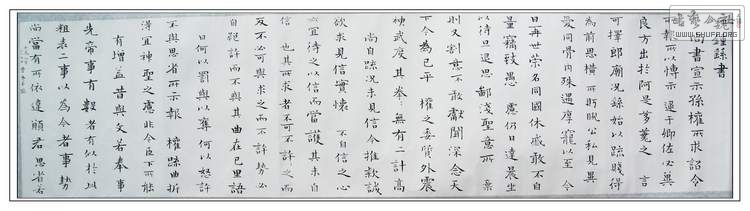 鍾繇書
尚書宣示孫權所求詔令
所報所以博示逮于卿佐必冀
良方出於阿是芻蕘之言
可擇郎廟況繇始以疏賤得
為前恩橫所盼睨公私見異
愛同骨肉殊遇厚寵以至今
日再世榮名同國休慼敢不自
量竊致愚慮仍日達晨坐
以待旦退思鄙淺聖意所棄
則又割意不敢獻聞深念天
下今為已平權之委質外震
神武度其拳拳無有二計高
尚自疏況未見信今推款誠
欲求見信實懷不自信之心
亦宜待之以信而當護其未自
信也其所求者不可不許許之而
反不必可與求之而不許勢必
自絕許而不與其曲在己里語
曰何以罰與以奪何以怒許
不與思省所示報權疏曲折
得宜神聖之慮非今臣下所能
有增益昔與文若奉事
先帝事有數者有似於此
粗表二事以為今者事勢
尚當有所依違願君思省若